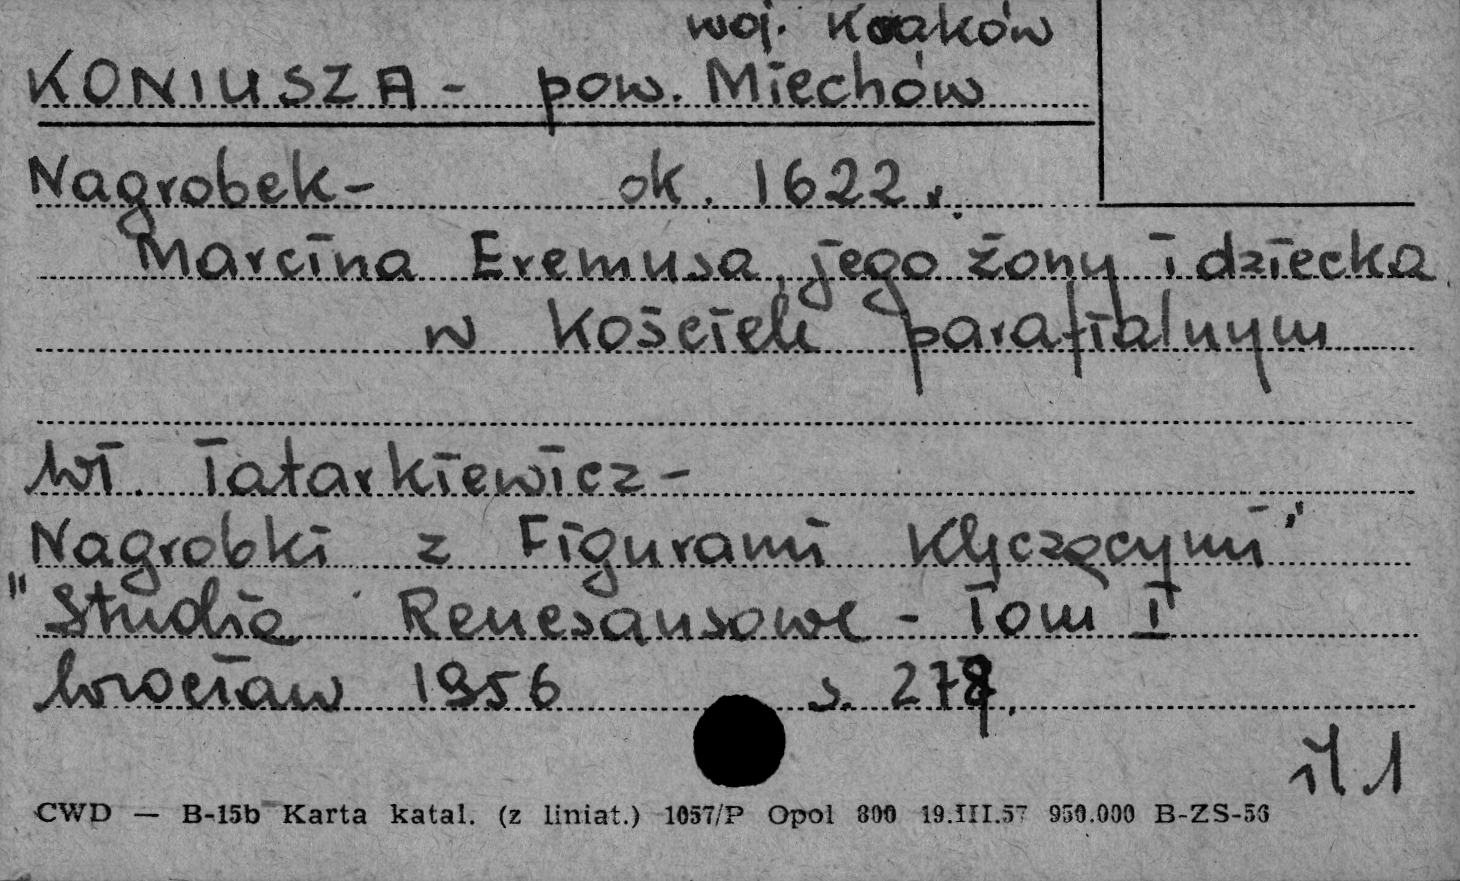 woj. Kraków
KONIUSZA - pow. Miechów
Nagrobek - ok. 1622 r.
Marcina Eremusa, jego żony i dziecka
w kościele parafialnym
Wł. Tatarkiewicz -
Nagrobki z Figurami Klęczącymi"
"Studia Renesansowe - Tom I
Wrocław 1956 s.
il 1
CWD — B-15b Karta katal. (z liniat.) 1057/P Opol 800 19.III.57 950.000 B-ZS-56